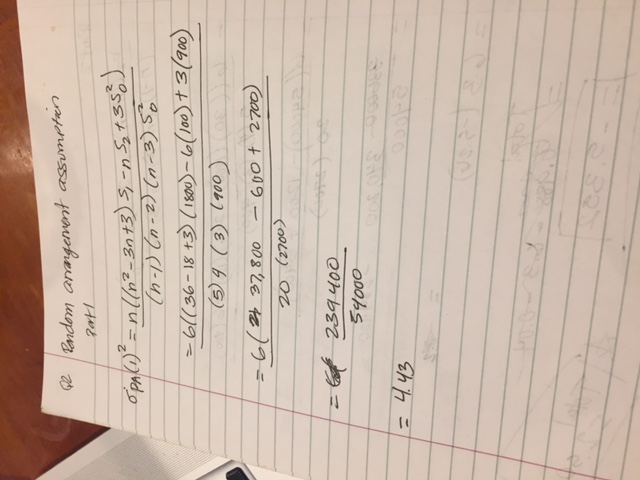 Q2 Random arrangement assumption
Part 1
σ_RA(1)² = n((n²-3n+3) S₁ - nS₂ + 3S₀²) / (n-1) (n-2) (n-3) S₀²
= 6((36-18+3) (1800) - 6(100) + 3(900) / (5) 4 (3) (900)
= 6( 37,800 - 600 + 2700) / 20 (2700)
= 239400 / 54000
= 4.43